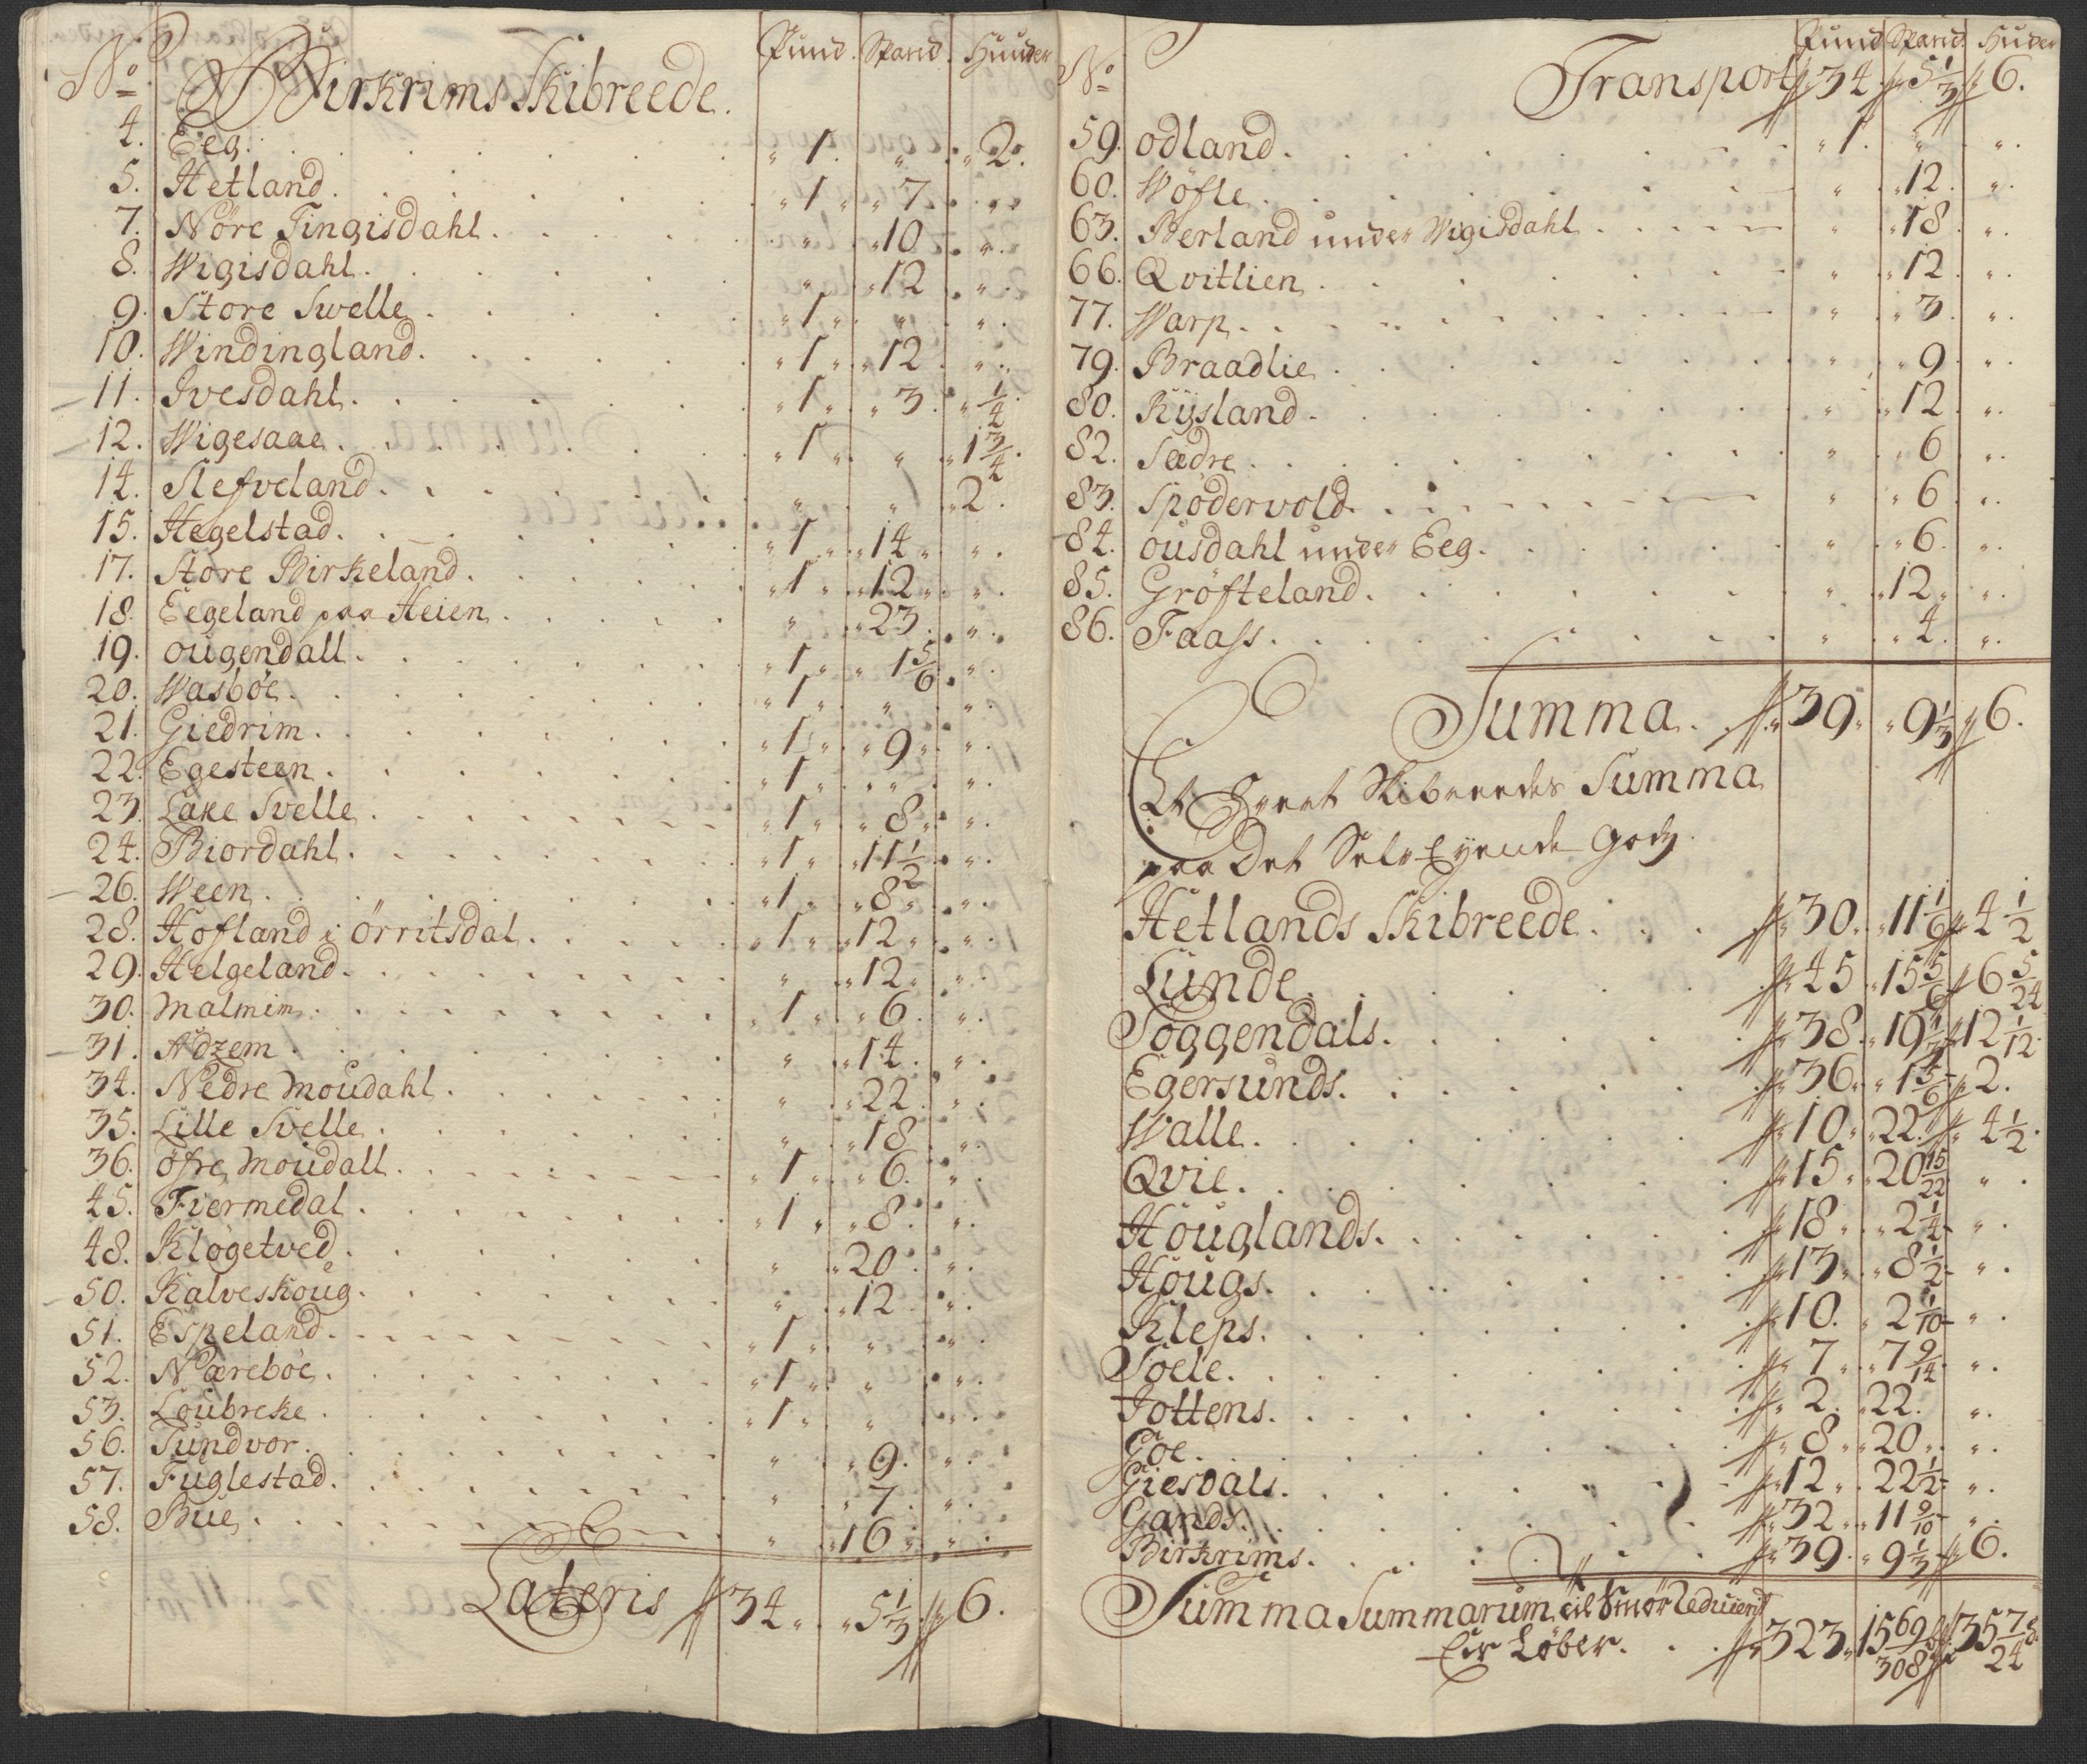 No Birkrims Skibreede. Pund. Spand. Huuder
4. Eeg. 1. " 2.
5. Hetland. 1 7 "
7. Nöre Tingisdahl. " 10 "
8. Wigisdahl. " 12 "
9. Store Swelle. 1 " "
10. Windingland. 1 12 "
11. Ivesdahl. 1 3 1/4
12. Wigesaae. 1 " 1 3/4
14. Slefveland. " " 2.
15. Hegelstad. 1 14 "
17. Store Birkeland. 1 12 "
18. Eegeland paa Heien. " 23 "
19. ougendall. 1 1 5/6 "
20. Wasböe. 1 " "
21. Giedrim. 1 9 "
22. Egesteen. 1 " "
23. Lake Svelle. 1 8 "
24. Biordahl. 1 11 1/2 "
26. Ween. 1 8 "
28. Hofland i örritsdal. 1 12 "
29. Helgeland. " 12 "
30. Malmim. 1 6 "
31. Adzem. " 14 "
34. Nedre Moudahl. " 22 "
35. Lille Svelle. " 18 "
36. öfre Moudall. 1 6 "
45. Fiermedal. 1 8 "
48. Klögetved. " 20 "
50. Kalveskoug. " 12 "
51. Espeland. 1 " "
52. Næreböe. 1 " "
53. Loubreke. 1 " "
56. Sundvor. " 9 "
57. Fuglestad. " 7 "
58. Bue. " 16 "
Lateris 34 5 1/3 6.
No Pund Spand. Huder
Transport 34 5 1/3 6.
59. odland. 1. " "
60. Wöfle. " 12 "
63. Berland under Wigisdahl " 18 "
66. Qvitlien. " 12 "
77. Warp. " 3 "
79. Braadlie. " 9 "
80. Rÿsland. " 12 "
82. Sædre. " 6 "
83. Spödervold. " 6 "
84. ousdahl under Eeg. " 6 "
85. Gröfteland. " 12 "
86. Faass. " 4 "
Summa. 39 9 1/3 6.
Et hvert Skibreedes Summa
paa Det Selv Eyende Gods.
Hetlands Skibreede. 30. 11 1/6 4 1/2
Lunde. 45 15 5/6 6 5/24
Soggendals. 38. 19 1/3 12 1/12
Egersunds. 36. 1 5/6 2.
Walle. 10 22. 4 1/2.
Qvie. 15 20 15/22 "
Houglands. 18 2 1/4 "
Hougs. 13 8 1/2 "
Kleps. 10. 2 1/10 "
Soele. 7 7 9/14 "
Jottens. 2 22. "
Goe. 8 20 "
Giesdals. 12 22 1/2 "
Gands. 32 11 9/10 "
Birkrims. 39. 9 1/3 6.
Summa Summarum til Smör Reducerit
Er Löber. 323 15 69/308 35 7/24